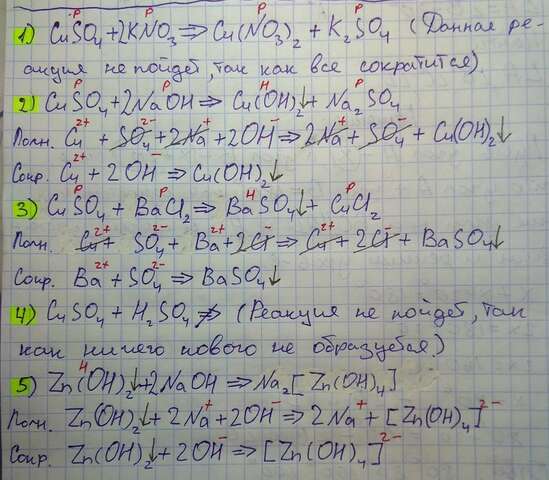 1) CuSO₄ + 2KNO₃ ⇒ Cu(NO₃)₂ + K₂SO₄ (Данная ре-
акция не пойдет, так как все сократится).
2) CuSO₄ + 2NaOH ⇒ Cu(OH)₂↓ + Na₂SO₄
Полн. Cu²⁺ + SO₄²⁻ + 2Na⁺ + 2OH⁻ ⇒ 2Na⁺ + SO₄⁻ + Cu(OH)₂↓
Сокр. Cu²⁺ + 2OH⁻ ⇒ Cu(OH)₂↓
3) CuSO₄ + BaCl₂ ⇒ BaSO₄↓ + CuCl₂
Полн. Cu²⁺ + SO₄²⁻ + Ba²⁺ + 2Cl⁻ ⇒ Cu²⁺ + 2Cl⁻ + BaSO₄↓
Сокр. Ba²⁺ + SO₄²⁻ ⇒ BaSO₄↓
4) CuSO₄ + H₂SO₄ ⇏ (Реакция не пойдет, так
как ничего нового не образуется.)
5) Zn(OH)₂↓ + 2NaOH ⇒ Na₂[Zn(OH)₄]
Полн. Zn(OH)₂↓ + 2Na⁺ + 2OH⁻ ⇒ 2Na⁺ + [Zn(OH)₄]²⁻
Сокр. Zn(OH)₂↓ + 2OH⁻ ⇒ [Zn(OH)₄]²⁻